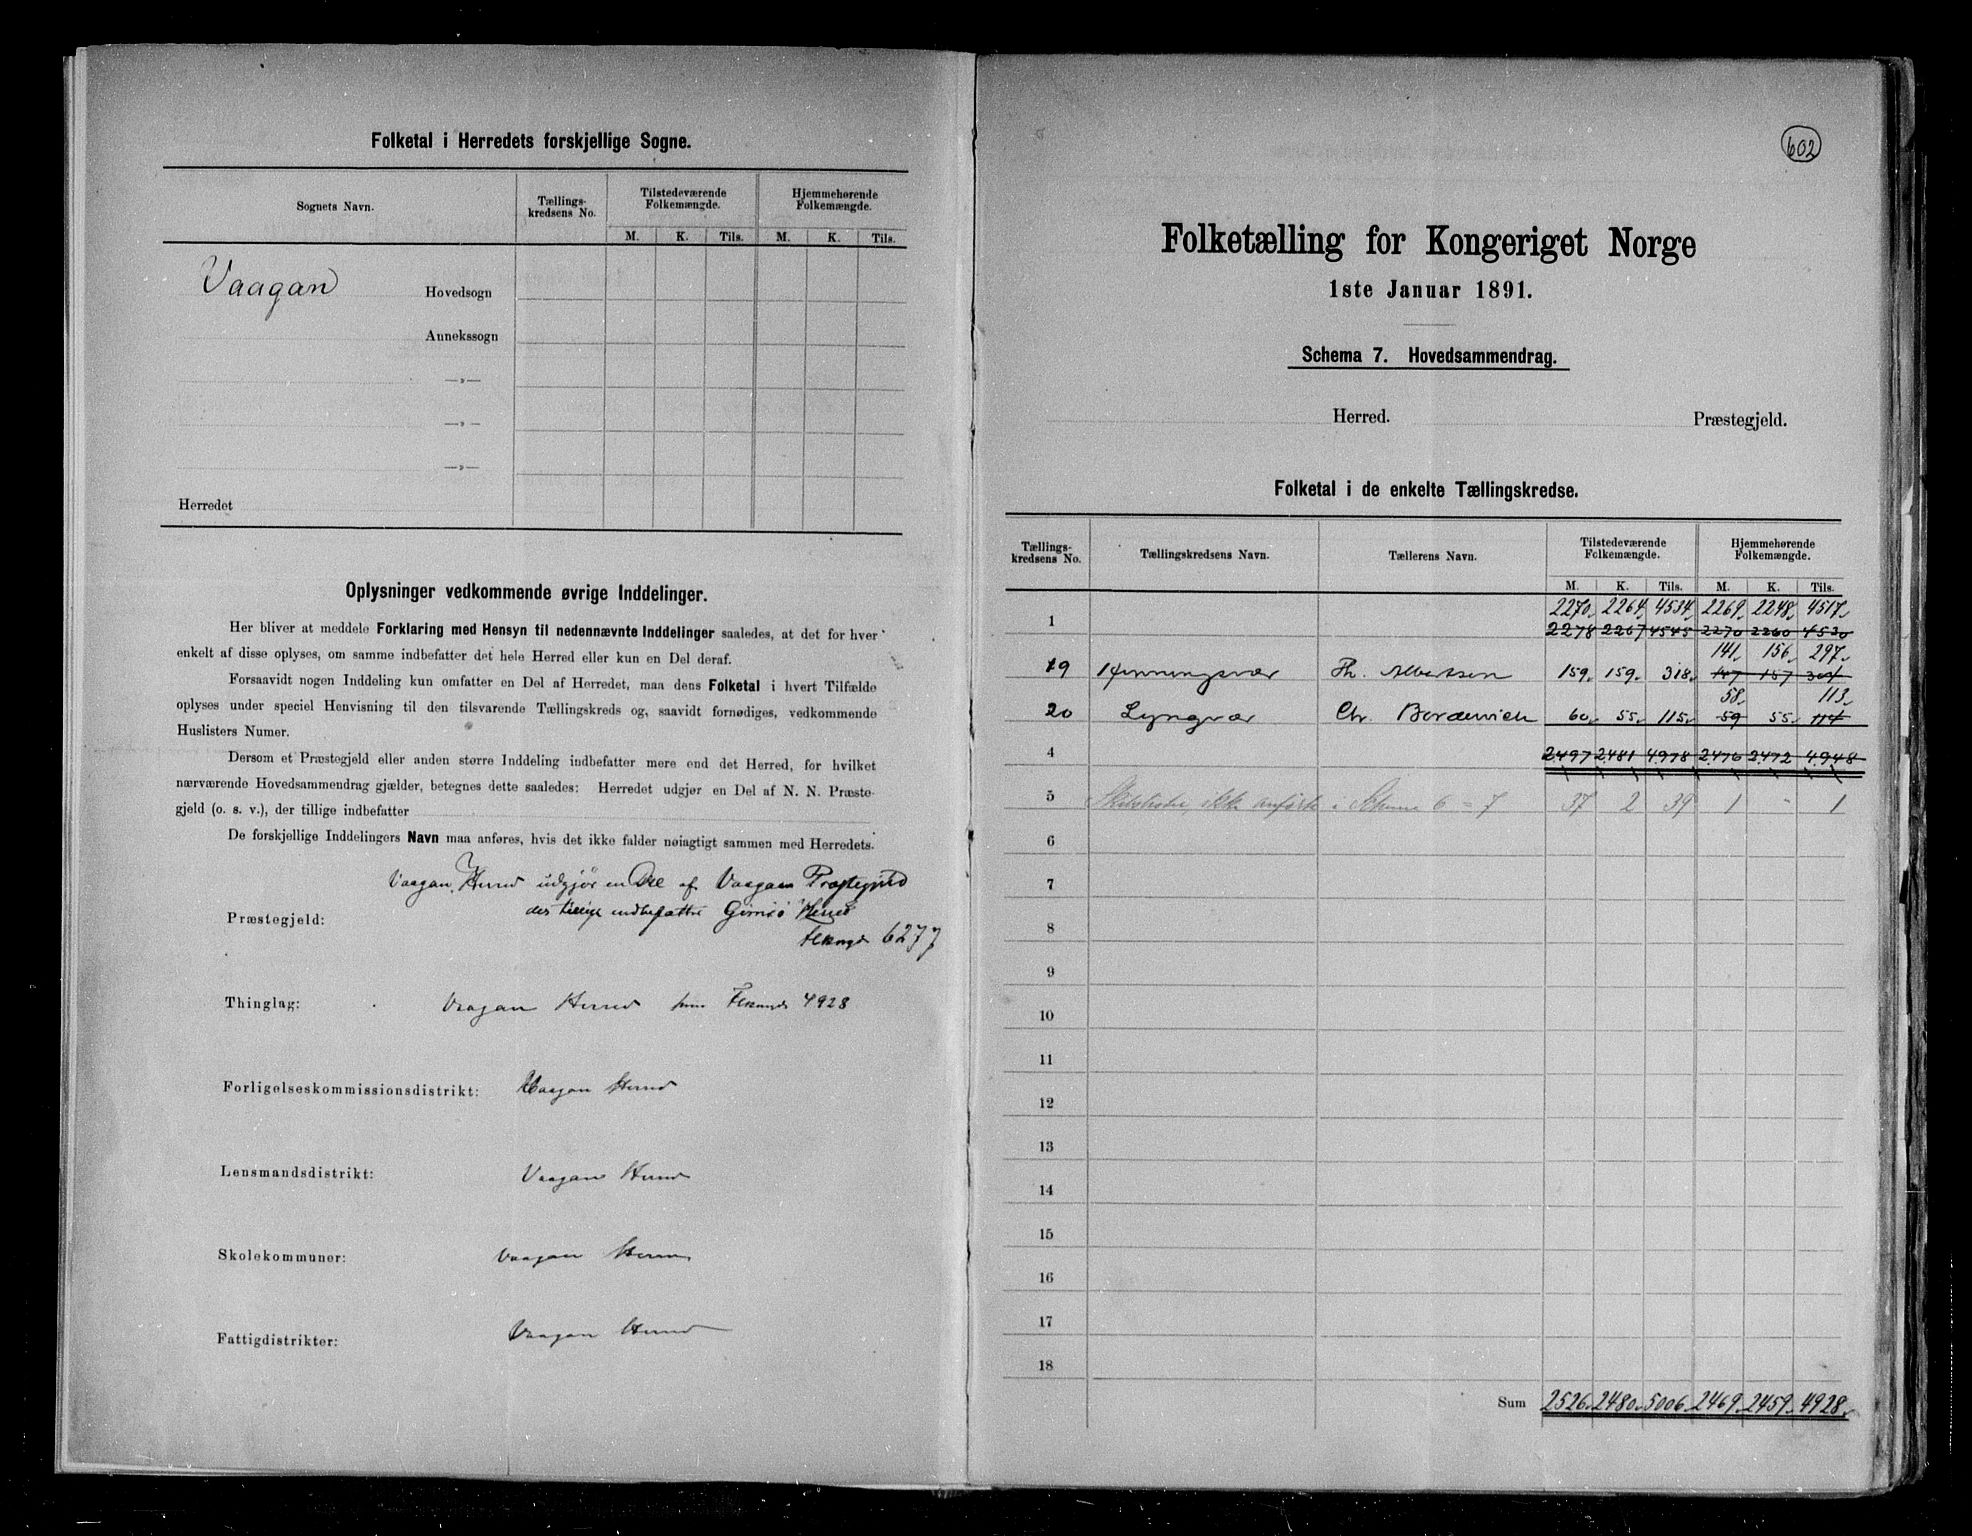 Folketal i Herredets forskjellige Sogne.
Sognets Navn.
Tællings-
kredsens No.
Tilstedeværende
Folkemængde.
Hjemmehørende
Folkemængde.
M. K. Tils. M. K. Tils.
Vaagan Hovedsogn
Annekssogn
—„—
—„—
—„—
Herredet
Oplysninger vedkommende øvrige Inddelinger.
Her bliver at meddele Forklaring med Hensyn til nedennævnte Inddelinger saaledes, at det for hver
enkelt af disse oplyses, om samme indbefatter det hele Herred eller kun en Del deraf.
Forsaavidt nogen Inddeling kun omfatter en Del af Herredet, maa dens Folketal i hvert Tilfælde
oplyses under speciel Henvisning til den tilsvarende Tællingskreds og, saavidt fornødiges, vedkommende
Huslisters Numer.
Dersom et Præstegjeld eller anden større Inddeling indbefatter mere end det Herred, for hvilket
nærværende Hovedsammendrag gjælder, betegnes dette saaledes: Herredet udgjør en Del af N. N. Præste-
gjeld (o. s. v.), der tillige indbefatter
De forskjellige Inddelingers Navn maa anføres, hvis det ikke falder nøiagtigt sammen med Herredets.
Vaagan Herred udgjør en Del af Vaagan Præstegjeld
Præstegjeld: der tillige indbefatter Gimsø Herred
6277
Thinglag: Vaagan Herred 4928
Forligelseskommissionsdistrikt: Vaagan Herred
Lensmandsdistrikt: Vaagan Herred
Skolekommuner: Vaagan Herred
Fattigdistrikter: Vaagan Herred
602
Folketælling for Kongeriget Norge
1ste Januar 1891.
Schema 7. Hovedsammendrag.
Herred. Præstegjeld.
Folketal i de enkelte Tællingskredse.
Tællings-
kredsens No.
Tællingskredsens Navn.
Tællerens Navn.
Tilstedeværende
Folkemængde.
Hjemmehørende
Folkemængde.
M. K. Tils. M. K. Tils.
2270 2264 4534 2269 2248 4517
1 2278 2267 4545 2270 2260 4530
141 156 297
19 Henningsvær Th. Albertsen 159 159 318 147 157 304
58 113
20 Lyngvær Chr. 60 55 115 59 55 114
4 2497 2481 4978 2476 2472 4948
5 ikke anførte i Schema 6 = 7 37 2 39 1 - 1
6
7
8
9
10
11
12
13
14
15
16
17
18
Sum 2526 2480 5006 2469 2459 4928